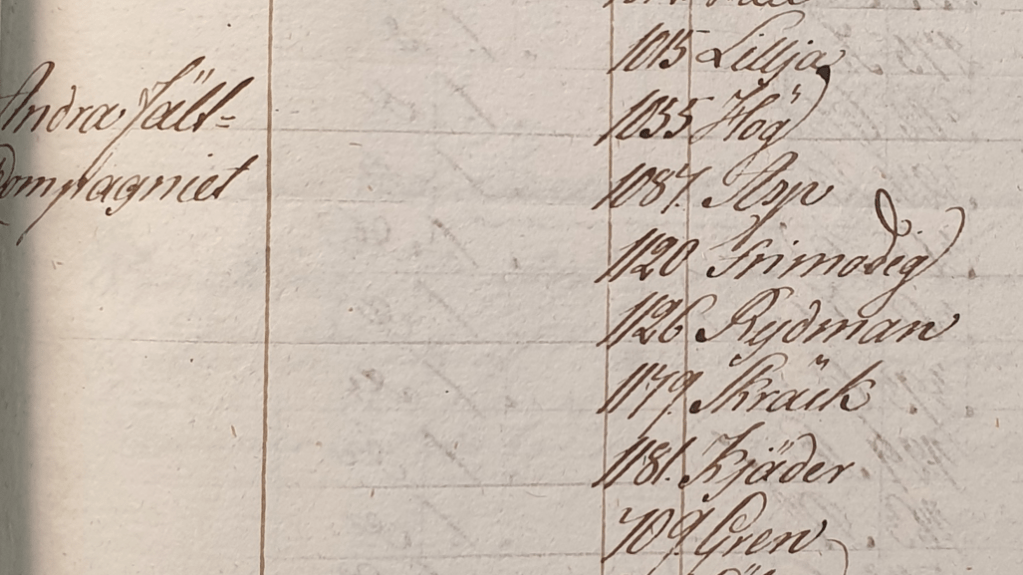 1015 Lillja
Andra Fält=
1035 Hög
Compagniet
1087. Asp
1120 Frimodig
1126 Rydman
1179. Skräck
1181. Kjäder
709. Gren